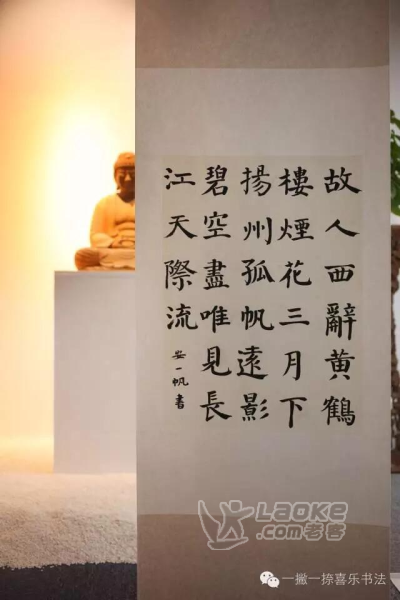 故人西辭黃鶴
樓煙花三月下
揚州孤帆遠影
碧空盡唯見長
江天際流
安一帆書
LAOKE
.com老客
一撇一捺喜乐书法